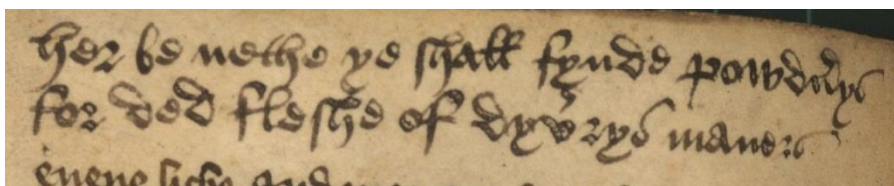 her be nethe ye shall fynde powdrys
for ded fleshe of dyv̾rys maners
evene liche and